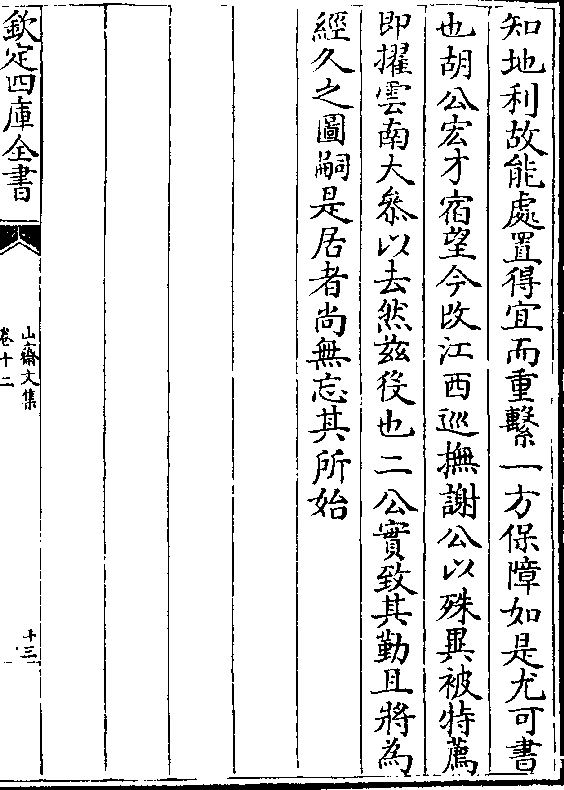 知地利故能處置得宜而重繫一方保障如是尤可書
也胡公宏才宿望今改江西巡撫謝公以殊異被特薦
即擢雲南大叅以去然兹役也二公實致其勤且將為
經久之圖嗣是居者尚無忘其所始
欽定四庫全書
山齋文集
卷十二
十三